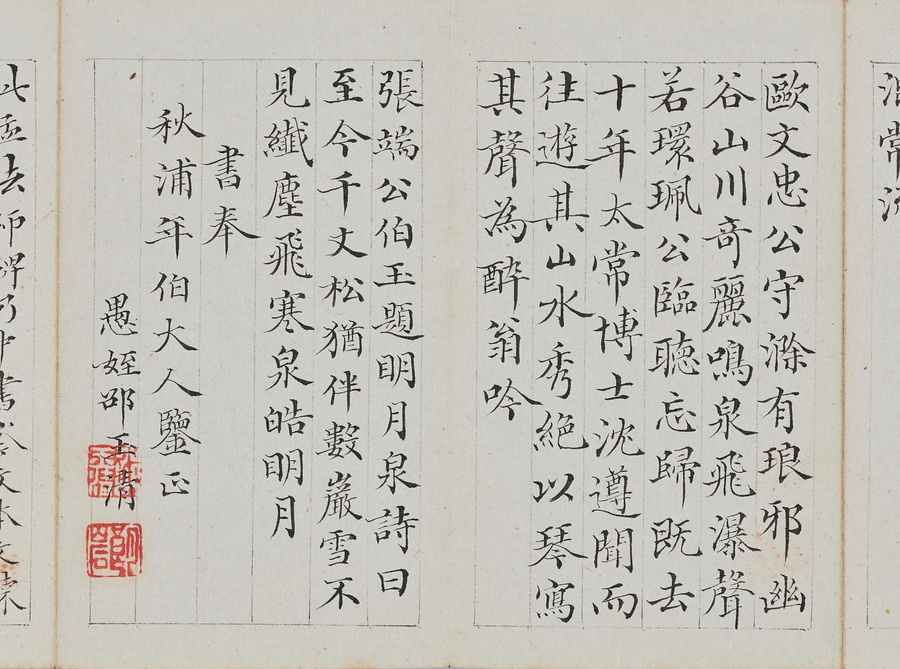 常
歐文忠公守滁有琅邪幽
谷山川奇麗鳴泉飛瀑聲
若環珮公臨聽忘歸既去
十年太常博士沈遵聞而
往遊其山水秀絕以琴寫
其聲為醉翁吟
張端公伯玉題明月泉詩曰
至今千丈松猶伴數巖雪不
見纖塵飛寒泉皓明月
書奉
秋浦年伯大人鑒正
愚姪邵玉清